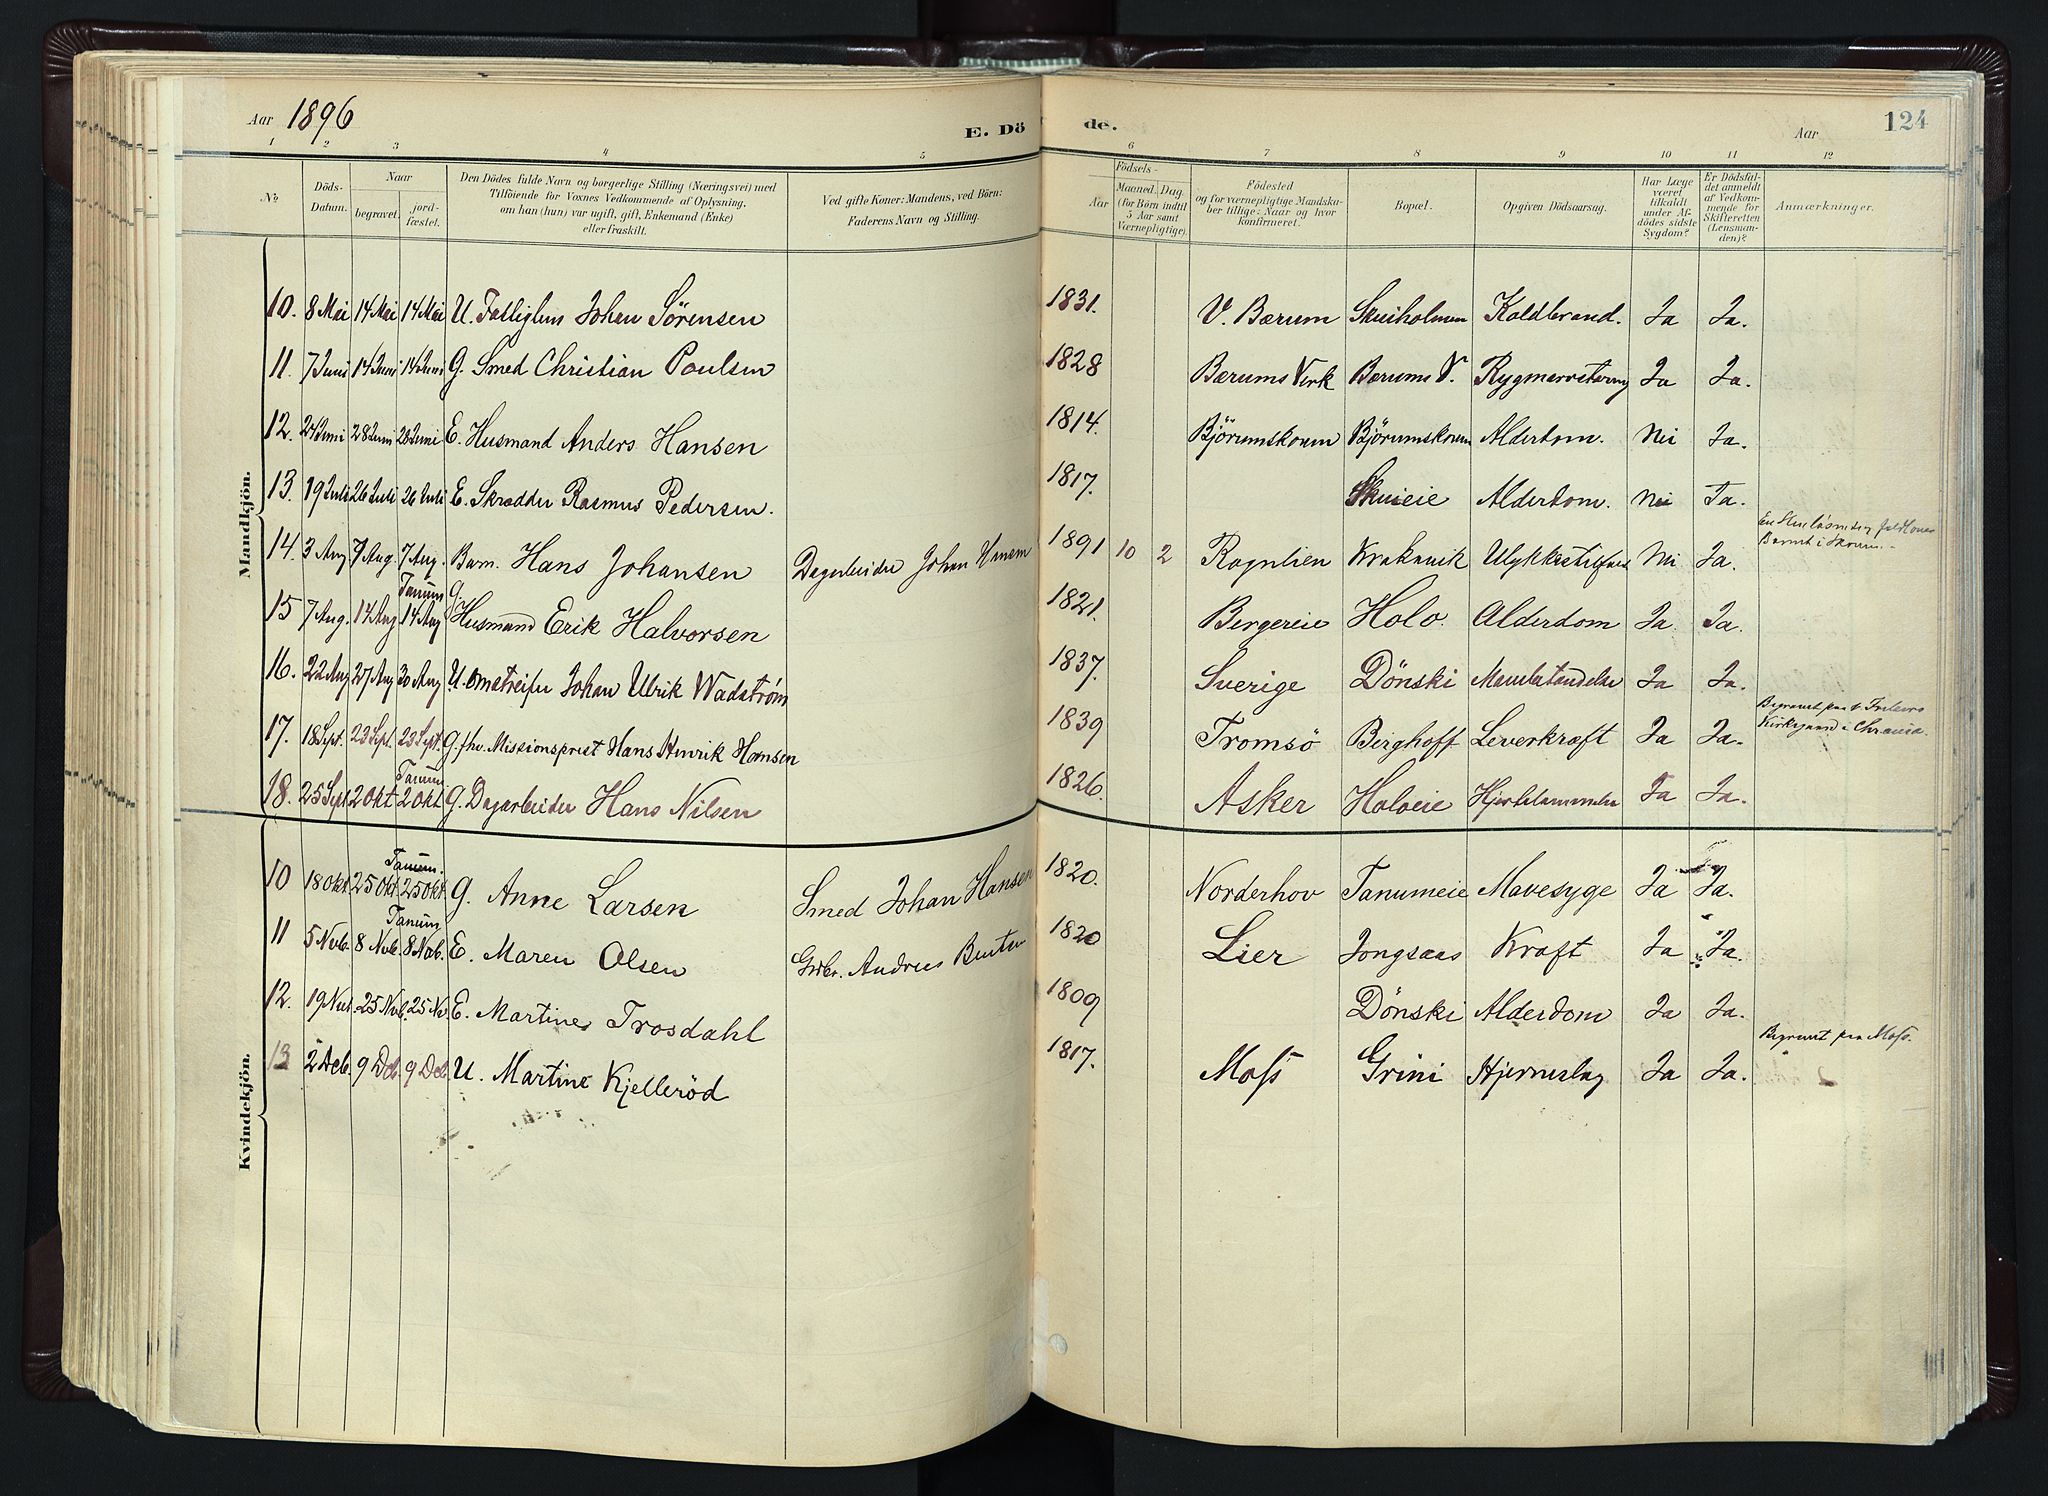 Aar 1896
E. Dö de.
124
Aar
1 2 3 4 5 6 7 8 9 10 11 12
No
Döds-Datum.
Naar
begravet.
jord-fæstet.
Den Dödes fulde Navn og borgerlige Stilling (Næringsvei) med
Tilföiende for Voxnes Vedkommende af Oplysning,
om han (hun) var ugift, gift, Enkemand (Enke)
eller fraskilt.
Ved gifte Koner: Mandens, ved Börn:
Faderens Navn og Stilling.
Födsels-
Aar
Maaned. Dag.
(for Börn indtil
5 Aar samt
Værnepligtige).
Födested
og for værnepligtige Mandska-
ber tillige: Naar og hvor
konfirmeret.
Bopæl.
Opgiven Dödsaarsag.
Har Læge
været
tilkaldt
under Af-
dödes sidste
Sygdom?
Er Dödsfal-
det anmeldt
af Vedkom-
mende for
Skifteretten
(Lensman-
den)?
Anmærkninger.
Mandkjön.
10. 8 Mai 14 Mai 14 Mai U. Fattiglem Johan Sørensen 1831. V. Bærum Skuiholmen Koldbrand. Ja Ja.
11. 7 Juni 14 Juni 14 Juni G. Smed Christian Poulsen 1828 Bærums Verk Bærums V. Rygmarvstæring Ja Ja.
12. 24 Juni 28 Juni 28 Juni E. Husmand Anders Hansen 1814. Björumskoum Björumskoum Alderdom. Nei Ja.
13. 19 Juli 26 Juli 26 Juli E. Skrædder Rasmus Pedersen. 1817. Skuieie Alderdom. Nei Ja.
14. 3 Aug 7 Aug. 7 Aug. Barn. Hans Johansen Dagarbeider Johan 1891 10 2 Rognlien Ulykkestilfælde Nei Ja.
15 7 Aug. 14 Aug Tanum 14 Aug G. Husmand Erik Halvorsen 1821. Bergereie Holo. Alderdom Ja Ja.
16. 22 Aug 27 Aug 30 Aug U. Omstreifer Johan Ulrik Wadstrøm 1837. Sverige Dönski Ja Ja.
17. 18 Sept. 23 Sept. 23 Sept. G. fhv. Missionsprest Hans Henrik Hansen 1839 Tromsö Berghoff Leverkræft Ja Ja. Begravet paa v. Frelsers Kirkegaard i Chrania.
18. 25 Sept 2 Okt Tanum 2 Okt G. Dagarbeider Hans Nilsen 1826. Asker Holoeie Hjertelammelse Ja Ja.
Kvindekjön.
10 18 Okt 25 Okt Tanum. 25 Okt. G. Anne Larsen Smed Johan Hansen 1820. Norderhov Tanumeie Mavesyge Ja Ja.
11 5 Novb. 8 Novb. Tanum 8 Novb. E. Maren Olsen Grbr. Andreas 1820 Lier Jongsaas Kræft Ja Ja.
12. 19 Nov. 25 Nvb. 25 Nv E. Martine Trosdahl 1809 Dönski Alderdom Ja Ja.
13 2 Dcb. 9 Dcb. 9 Dcb. U. Martine Kjellerød 1817. Moss Grini Hjerneslag Ja Ja. Begravet paa Moss.